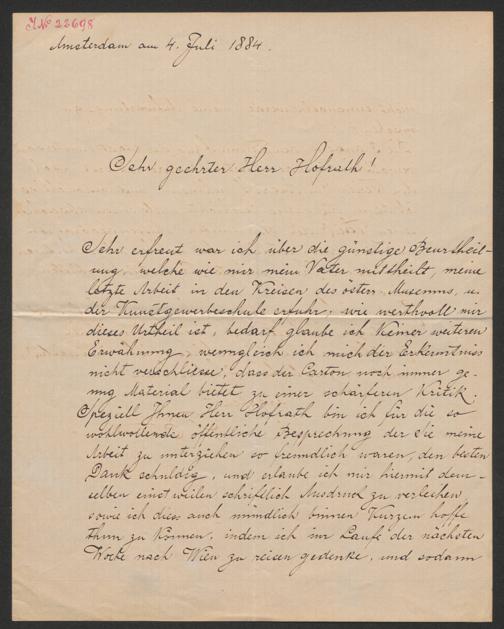 J.N. 22698
Amsterdam am 4. Juli 1884.
Sehr geehrter Herr Hofrath!
Sehr erfreut war ich über die günstige Beurtheil-
ung, welche wie mir mein Vater mittheilt, meine
letzte Arbeit in den Kreisen des österr. Museums, u.
der Kunstgewerbeschule erfuhr; wie werthvoll mir
dieses Urtheil ist, bedarf glaube ich keiner weiteren
Erwähnung, wenngleich ich mich der Erkenntniss
nicht verschliesse, dass der Carton noch immer ge-
nug Material bietet zu einer schärferen Kritik.
Speziell Ihnen Herr Hofrath bin ich für die so
wohlwollende öffentliche Besprechung der Sie meine
Arbeit zu unterziehen so freundlich waren, den besten
Dank schuldig, und erlaube ich mir hiermit dem-
selben einstweilen schriftlich Ausdruck zu verleihen,
sowie ich diess auch mündlich binnen Kurzem hoffe
thun zu können, indem ich im Laufe der nächsten
Woche nach Wien zu reisen gedenke, und sodann